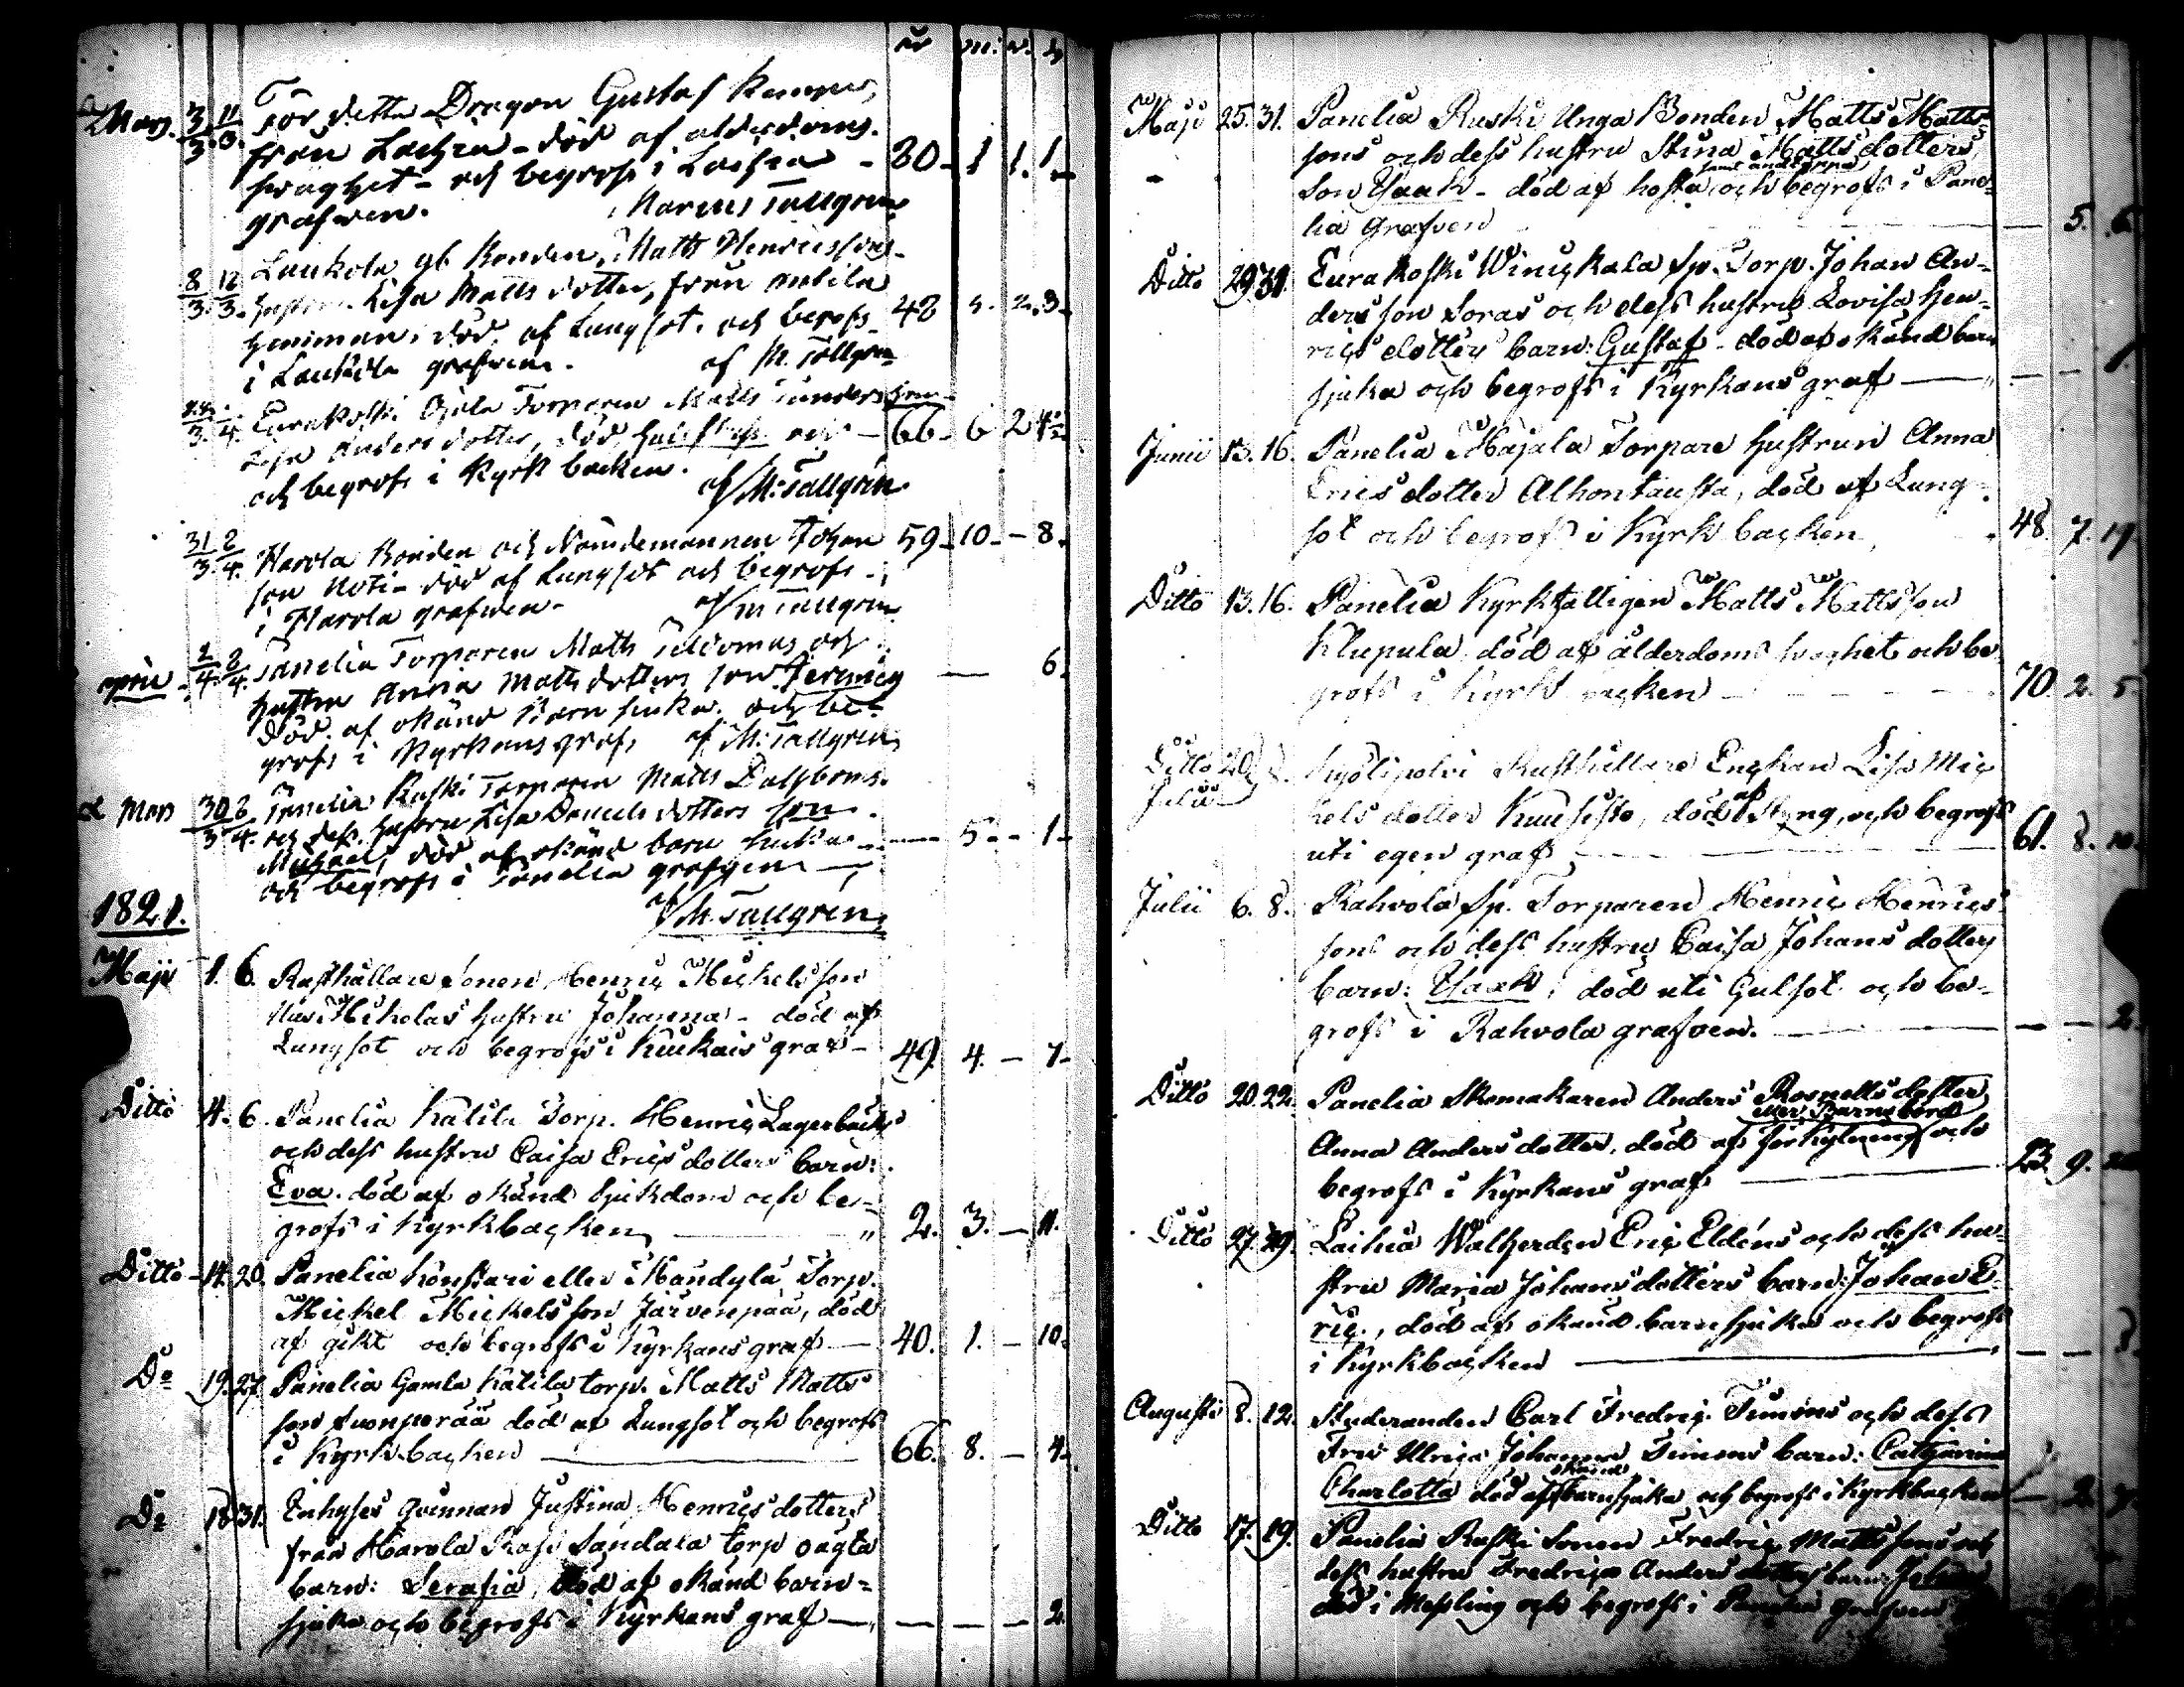 år m. v. d.
Mars. 3/3 11/3. För detta Dragon Gustaf
från Laihia - död af ålderdoms-
swaghet - och begrofs i Laihia - 80 - 1 1. 1
grafwen. Marcus Tallgren
8/3. 12/3. Laukola gb Bonden, Matts Henricssons
hustru Lisa Matts dotter, från Anttila
hemman, död af Lungsot. och begrofs 48 2. 3.
i Laukola grafwen. af M. Tallgren
Eurakoski Torparen Matts hustru
Lisa Anders dotter, död och 66 - 6 2
och begrofs i Kyrk backen.
af M: Tallgren
31/3. 2/4. Harola Bonden och Nämdemannen Johan 59 - 10 - - 8.
son - död af Lungsot och begrofs -
i Harola grafwen - af M Tallgren
April 1/4. 2/4. Panelia Torparen Matts och
hustru Anna Matts dotters son Jeremias — 6.
död af okänd Barn siuka. och be-
grofs i Kyrkans graf, af M: Tallgren
Mars 30/3 2/4. Panelia Ruski Torparen Matts Dalboms
och dess hustru Lisa Daniels dotters son
Michael, död af okänd barn siuka — 5 - - 1 -
och begrofs i Panelia grafwen —
af M. Tallgren
1821.
Maji 1. 6. Rusthållare Sonen Henric Mickelsson
Mikolas hustru Johanna - död af
Lungsot och begrofs i Kuukais graf - 49. 4. - 7 -
Ditto 4. 6. Panelia Katila Torp. Henric Lagerbäcks
och dess hustru Caisa Erics dotters barn:
Eva. död af okänd sjukdom och be-
grofs i Kyrkbacken — „ 2. 3. - 11.
Ditto - 14. 20. Panelia Konstari eller Mandyla Torp.
Mickel Mickelsson Järvenpää, död
af gikt och begrofs i Kyrkans graf — 40. 1. - 10.
Do 19. 27. Panelia Gamla Katila torp. Matts Matts
son Suonperää död af Lungsot och begrofs
i Kyrkbacken — 66. 8. - 4 -
Do 18. 31. Enhyses Qvinnan Justina Henrics dotters
från Harola Rasi Sandala torp oägta
barn: Serafia, död af okänd barn-
sjuka och begrofs i Kyrkans graf — — — — 2.
Maji 25. 31. Panelia Ruski Unga Bonden Matts Matts
sons och dess hustru Stina Matts dotters
samt andtäppa
Son Isaak - död af hosta och begrofs i Pane-
lia Grafven — — 5. 6.
Ditto 29. 31. Eurakoski Winickala Sp. Torp. Johan An-
dersson Soras och dess hustru Lovisa Hen-
rics dotters barn: Gustaf - död af okänd barn
sjuka och begrofs i Kyrkans graf — „ — — 1.
Junii 13. 16. Panelia Majala Torpare hustrun Anna
Erics dotter Alhontausta, död af Lung-
sot och begrofs i Kyrk backen, 48. 7. 19
Ditto 13. 16. Panelia Kyrkfattigen Matts Mattsson
Klupula död af ålderdoms svaghet och be
grofs i Kyrk backen — 70. 2. 5.
Ditto 20. Rusthållare Enckan Lisa Mic
Julii
kels dotter Kuusisto, död af Styng, och begrofs
uti egen graf — 61. 8. 10.
Julii 6. 8. Rahvola Sp. Torparen Henric Henrics
sons och dess hustru Caisa Johans dotters
barn: Isaak, död uti Gulsot och be-
grofs i Rahvola grafven. — — — 2.
Ditto 20. 22. Panelia Skomakaren Anders Rosnells dotter
efter Barnsbörd
Anna Anders dotter, död af förkylning och
begrofs i Kyrkans graf — 23. 9.
Ditto 27. 29. Laihia Eric Eldéns och dess hu-
stru Maria Johans dotters barn: Johan E-
ric., död af okänd barnsjuka och begrofs
i Kyrkbacken —
Augusti 8. 12. Studeranden Carl Fredric Timéns och dess
Fru Ulrica Johanna Timens barn: Catharina
okänd
Charlotta död af barnsjuka och begrofs i Kyrkbacken — 2. 7.
Ditto 17. 19. Panelia Ruski Sonen Fredric Matts sons och
dess hustru Fredrica Anders dotters barn:
död i Messling och begrofs i Panelia grafven